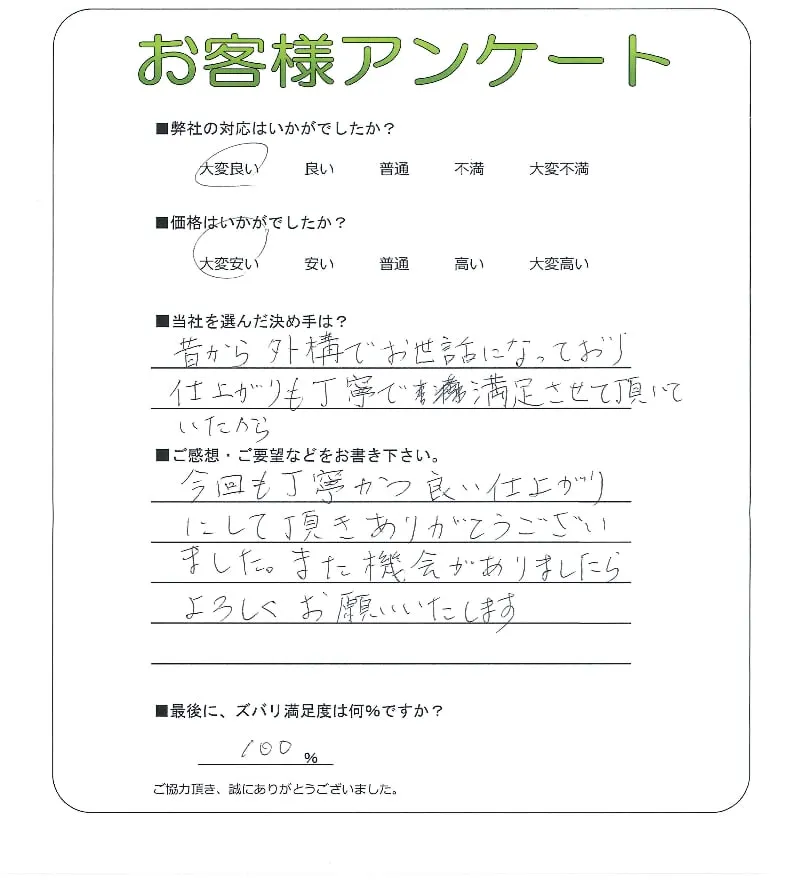 お客様アンケート
■弊社の対応はいかがでしたか？
大変良い 良い 普通 不満 大変不満
■価格はいかがでしたか？
大変安い 安い 普通 高い 大変高い
■当社を選んだ決め手は？
昔から外構でお世話になっており
仕上がりも丁寧で満足させて頂いて
いたから
■ご感想・ご要望などをお書き下さい。
今回も丁寧かつ良い仕上がり
にして頂きありがとうござい
ました。また機会がありましたら
よろしくお願いいたします
■最後に、ズバリ満足度は何％ですか？
100 %
ご協力頂き、誠にありがとうございました。